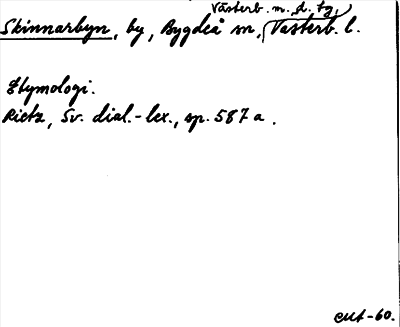 Västerb. m. d. tg,
Skinnarbyn, by, Bygdeå sn, Västerb. l.
Etymologi.
Rietz, Sv. dial.-lex., sp. 587 a.